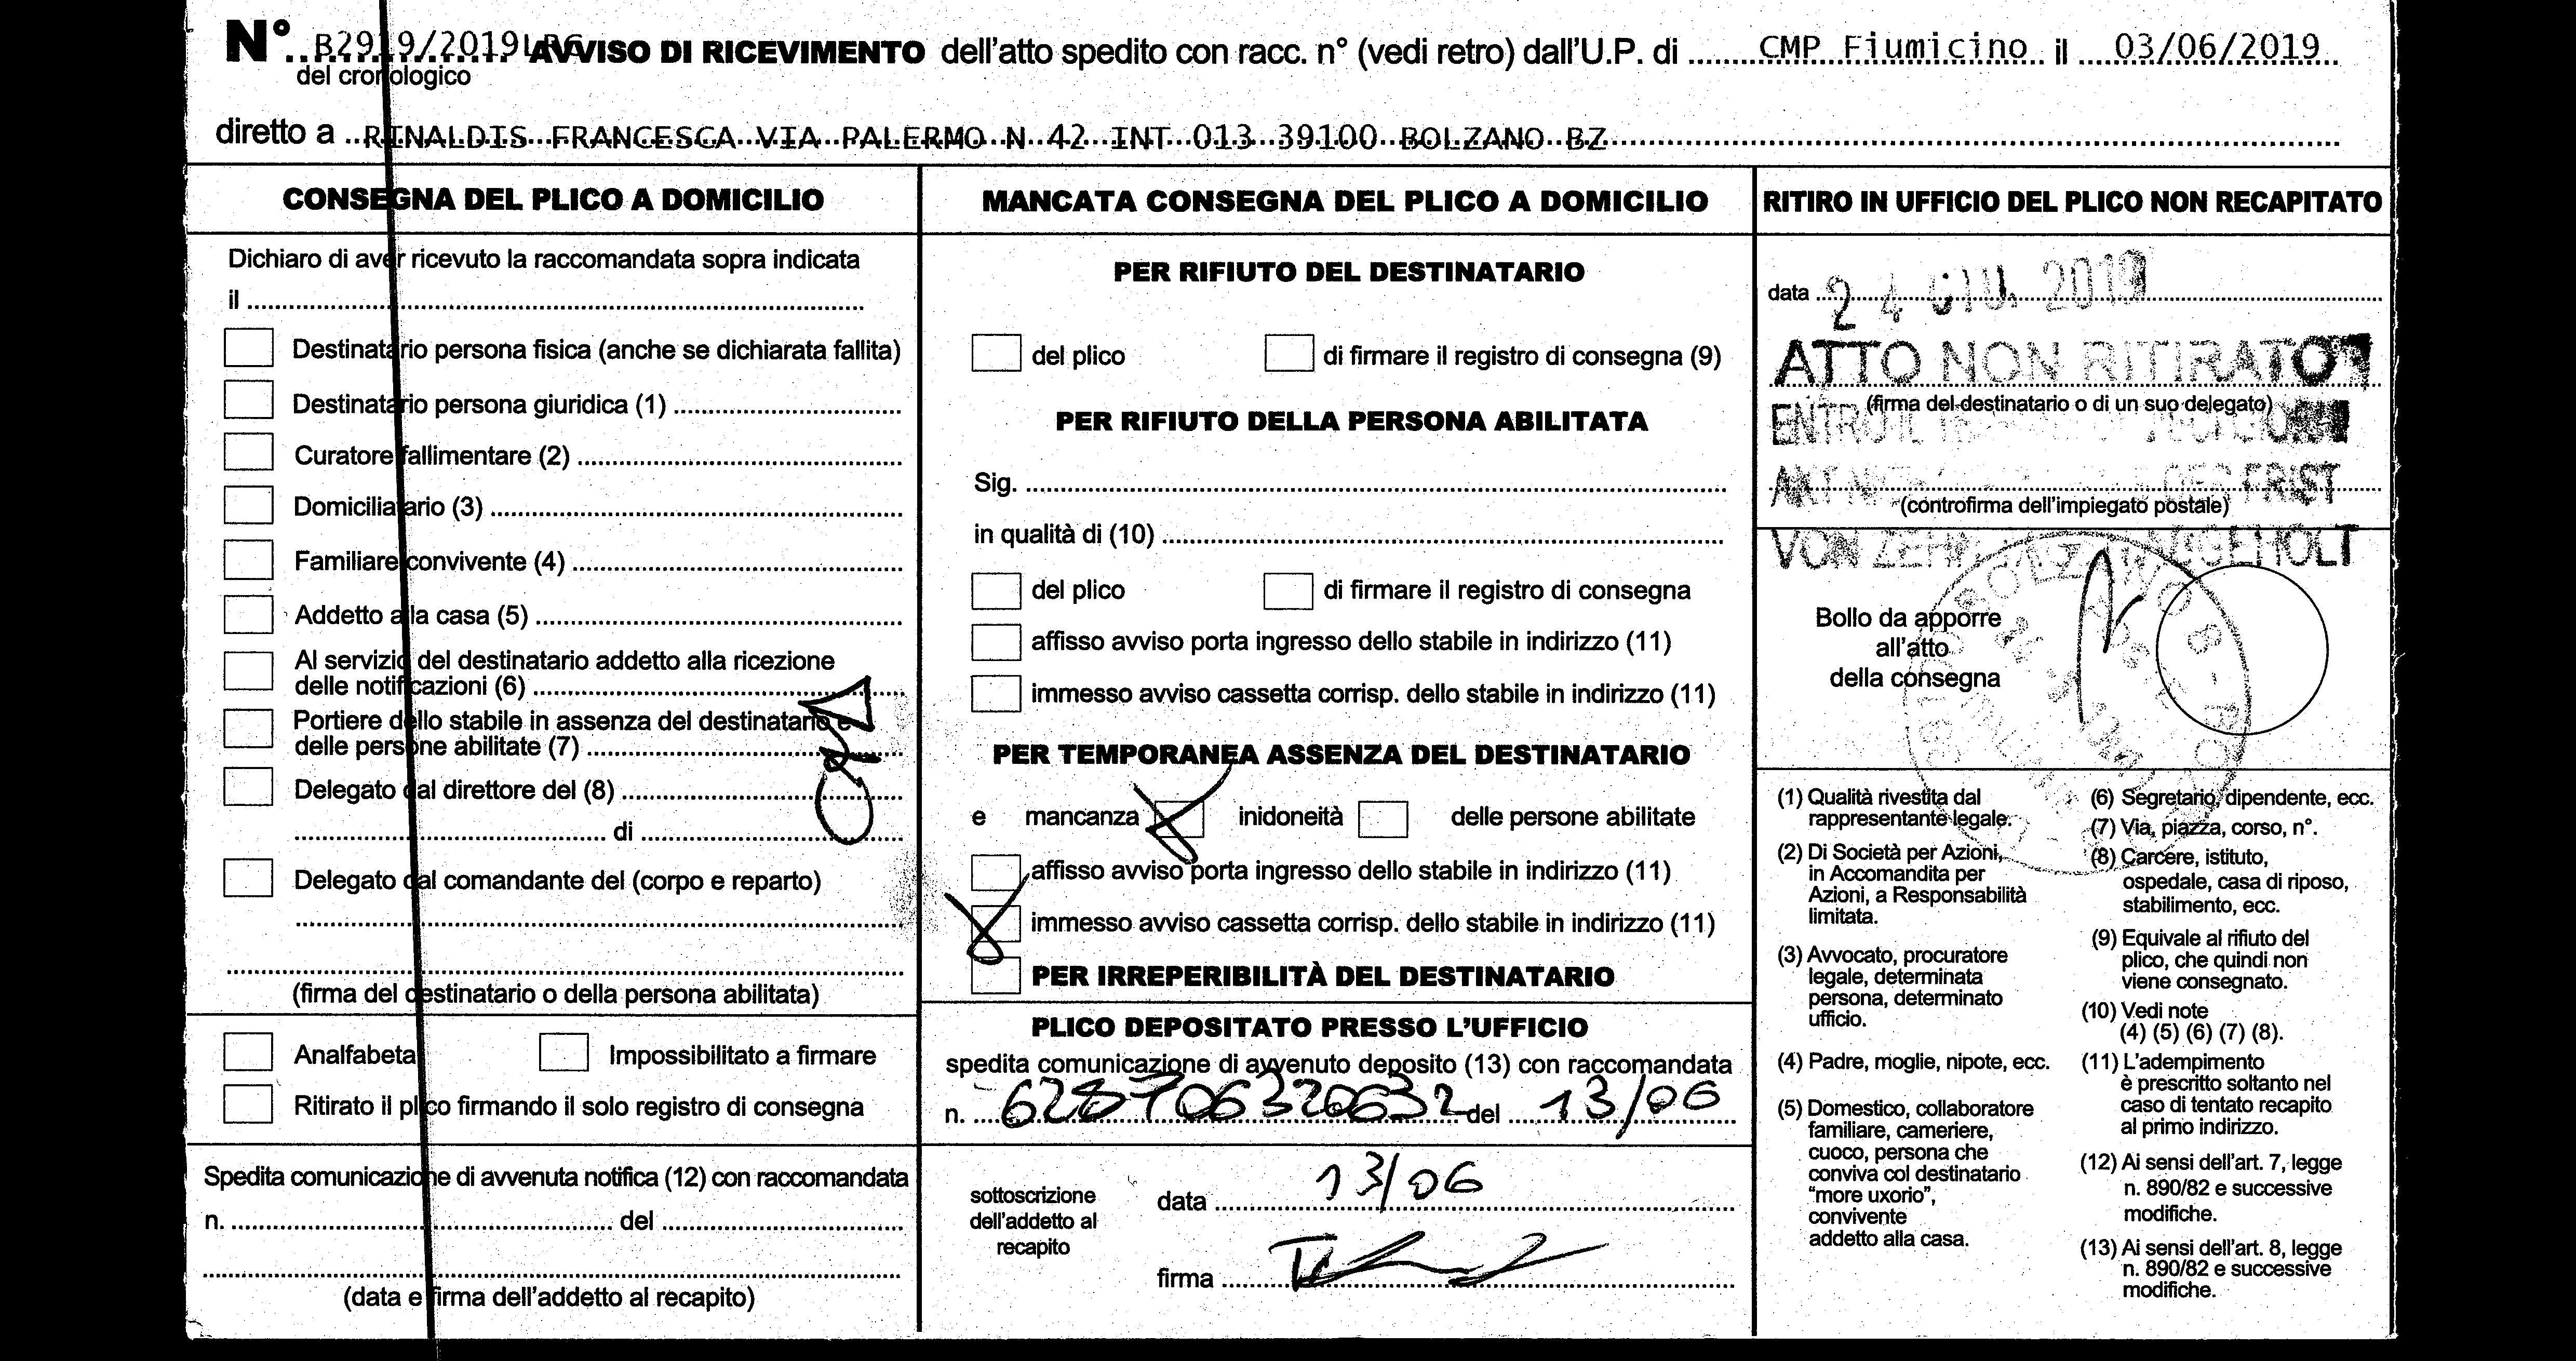 N° B2919/2019LRG AVVISO DI RICEVIMENTO dell'atto spedito con racc. n° (vedi retro) dall'U.P. di CMP Fiumicino il 03/06/2019
del cronologico
diretto a RINALDIS FRANCESCA VIA PALERMO N 42 INT 013 39100 BOLZANO BZ
CONSEGNA DEL PLICO A DOMICILIO
Dichiaro di aver ricevuto la raccomandata sopra indicata
il
Destinatario persona fisica (anche se dichiarata fallita)
Destinatario persona giuridica (1)
Curatore fallimentare (2)
Domiciliatario (3)
Familiare convivente (4)
Addetto alla casa (5)
Al servizio del destinatario addetto alla ricezione
delle notificazioni (6)
Portiere dello stabile in assenza del destinatario e
delle persone abilitate (7)
Delegato dal direttore del (8)
di
Delegato dal comandante del (corpo e reparto)
(firma del destinatario o della persona abilitata)
Analfabeta Impossibilitato a firmare
Ritirato il plico firmando il solo registro di consegna
Spedita comunicazione di avvenuta notifica (12) con raccomandata
n. del
(data e firma dell'addetto al recapito)
MANCATA CONSEGNA DEL PLICO A DOMICILIO
PER RIFIUTO DEL DESTINATARIO
del plico di firmare il registro di consegna (9)
PER RIFIUTO DELLA PERSONA ABILITATA
Sig.
in qualità di (10)
del plico di firmare il registro di consegna
affisso avviso porta ingresso dello stabile in indirizzo (11)
immesso avviso cassetta corrisp. dello stabile in indirizzo (11)
PER TEMPORANEA ASSENZA DEL DESTINATARIO
e mancanza inidoneità delle persone abilitate
affisso avviso porta ingresso dello stabile in indirizzo (11)
immesso avviso cassetta corrisp. dello stabile in indirizzo (11)
PER IRREPERIBILITÀ DEL DESTINATARIO
PLICO DEPOSITATO PRESSO L'UFFICIO
spedita comunicazione di avvenuto deposito (13) con raccomandata
n. 628706320632 del 13/06
sottoscrizione
dell'addetto al
recapito
data 13/06
firma
RITIRO IN UFFICIO DEL PLICO NON RECAPITATO
data 24 GIU. 2019
ATTO NON RITIRATO
(firma del destinatario o di un suo delegato)
ENTRO IL
FRIST
(controfirma dell'impiegato postale)
VON
Bollo da apporre
all'atto
della consegna
BOLZANO
(1) Qualità rivestita dal
rappresentante legale.
(2) Di Società per Azioni,
in Accomandita per
Azioni, a Responsabilità
limitata.
(3) Avvocato, procuratore
legale, determinata
persona, determinato
ufficio.
(4) Padre, moglie, nipote, ecc.
(5) Domestico, collaboratore
familiare, cameriere,
cuoco, persona che
conviva col destinatario
"more uxorio",
convivente
addetto alla casa.
(6) Segretario, dipendente, ecc.
(7) Via, piazza, corso, n°.
(8) Carcere, istituto,
ospedale, casa di riposo,
stabilimento, ecc.
(9) Equivale al rifiuto del
plico, che quindi non
viene consegnato.
(10) Vedi note
(4) (5) (6) (7) (8).
(11) L'adempimento
è prescritto soltanto nel
caso di tentato recapito
al primo indirizzo.
(12) Ai sensi dell'art. 7, legge
n. 890/82 e successive
modifiche.
(13) Ai sensi dell'art. 8, legge
n. 890/82 e successive
modifiche.